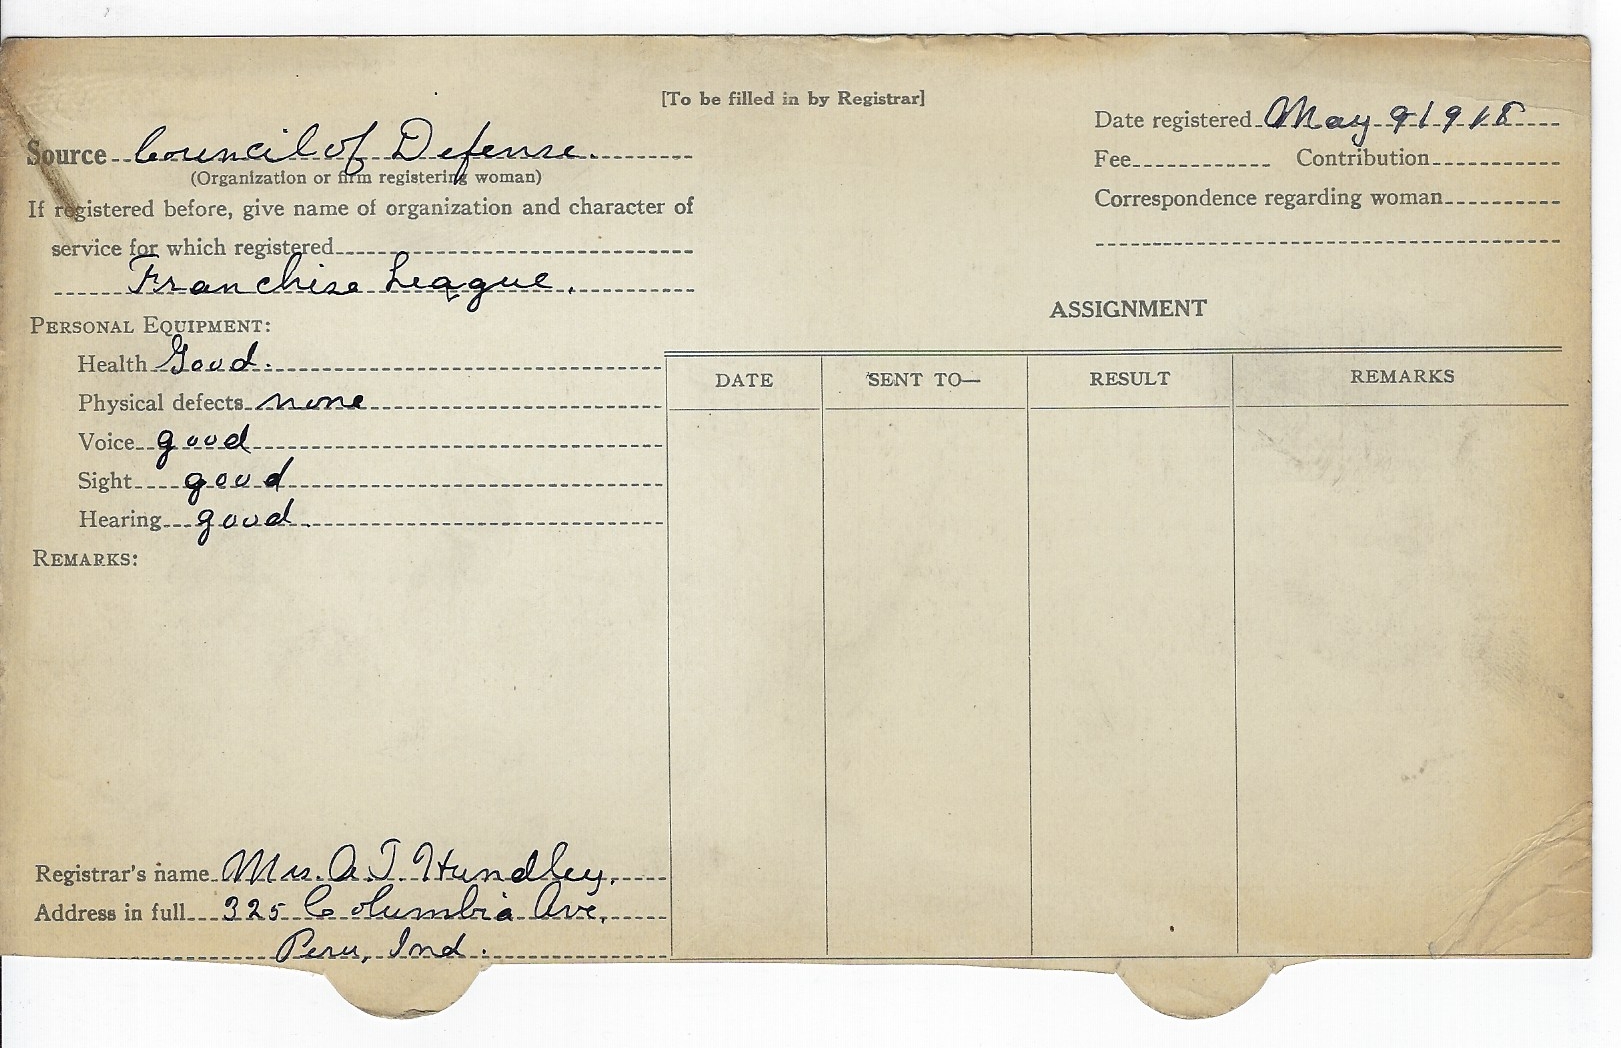 [To be filled in by Registrar]
Source Council of Defense.
(Organization or firm registering woman)
If registered before, give name of organization and character of
service for which registered
Franchise League.
PERSONAL EQUIPMENT:
Health Good.
Physical defects none
Voice good
Sight good
Hearing good.
REMARKS:
Registrar's name Mrs. A. J. Hundley,
Address in full 325 Columbia Ave,
Peru, Ind.
Date registered May 9 1918
Fee Contribution
Correspondence regarding woman
ASSIGNMENT
DATE SENT TO— RESULT REMARKS